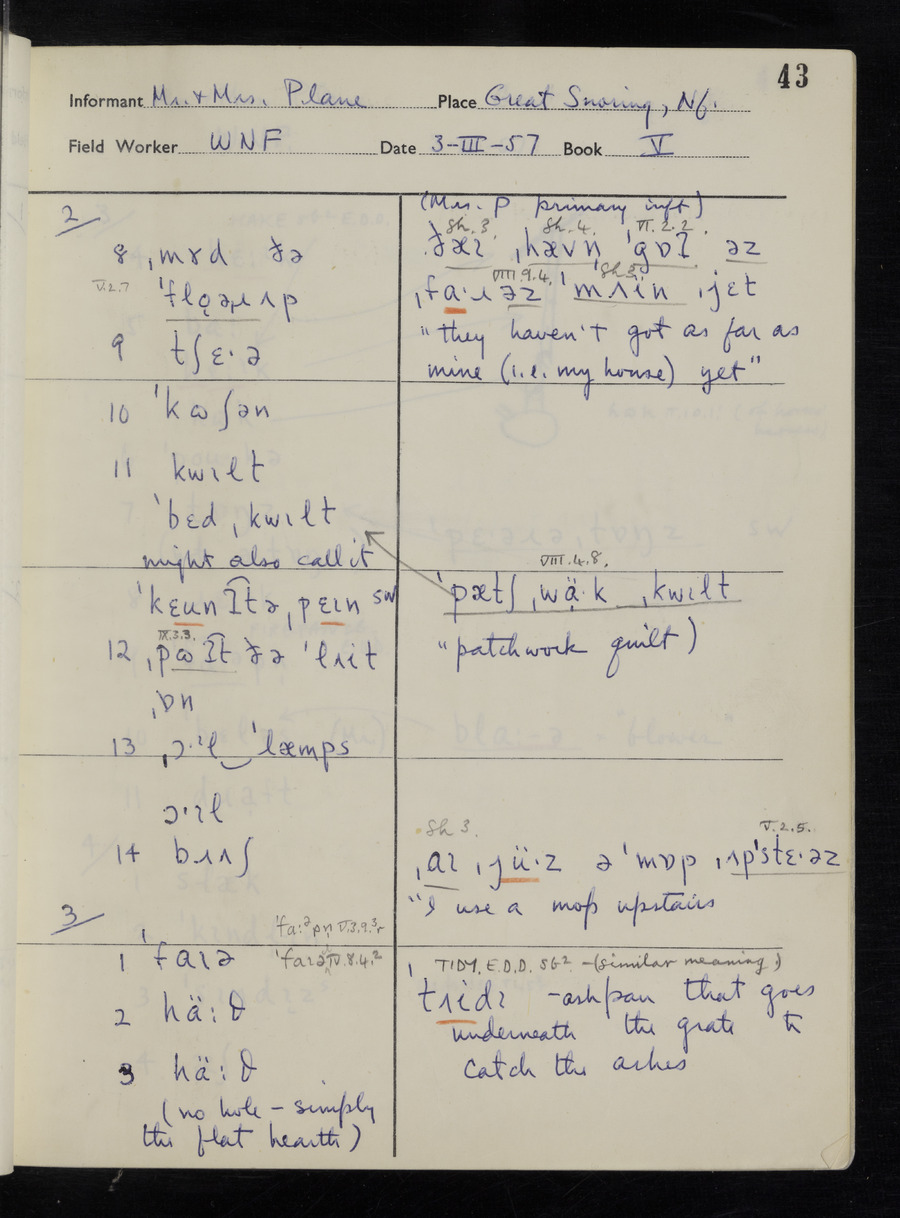 43
Informant Mr. & Mrs. Plane Place Great Snoring, Nf.
Field Worker WNF Date 3-III-57 Book V
2
(Mrs. P primary inft)
8 ˌmɤd ðə
Sh. 3. Sh. 4. VI. 2. 2.
ˌhævn̩ ˈgɒʔ əz
V.2.7
VIII. 9. 4. Sh 5.
ˌfa·ɹ əz ˈmʌïn ˌjɛt
9 tʃɛ·ə
"they haven't got as far as
mine (i.e. my house) yet"
10 ˈkɷʃən
11 kwɪlt
ˈbɛd ˌkwɪlt
might also call it
VIII. 4. 8.
ˈpætʃ ˌwä·k ˌkwɪlt
"patchwork quilt)
SW
IX. 3.3.
12 ðə ˈlɪit
ˌɒn
13 ˌɔ·ˈl ‿ ˈlæmps
ɔ·ɪl
14 bɹʌʃ
Sh 3. V. 2. 5.
ˌaɪ ˌjü·z ə ˈmɒp ˌʌpˈstɛ·əz
"I use a mop upstairs
3
V.3.9.
1 ˈfaɪə ˈfaɪə IV. 8. 4.²
TIDY, E.D.D. SB² - (similar meaning)
ˈtɹidɪ - ashpan that goes
underneath the grate to
catch the ashes
2 hä:θ
3 hä:θ
(no hole - simply
the flat hearth)